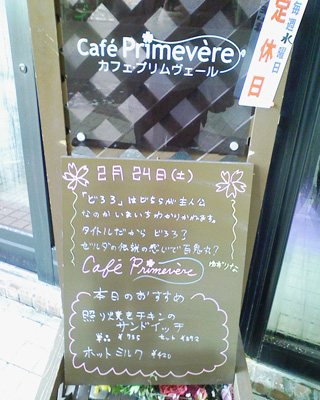 Café Primevère
カフェ・プリムヴェール
毎週水曜日
定休日
2月24日(土)
「どろろ」はどちらが主人公
なのかいまいちわかりかねます。
タイトルだから どろろ?
ゼルダの伝説の感じで百鬼丸?
Café Primevère
ゆかりな
本日のおすすめ
照り焼きチキンの
サンドイッチ
単品 セット
ホットミルク ¥420